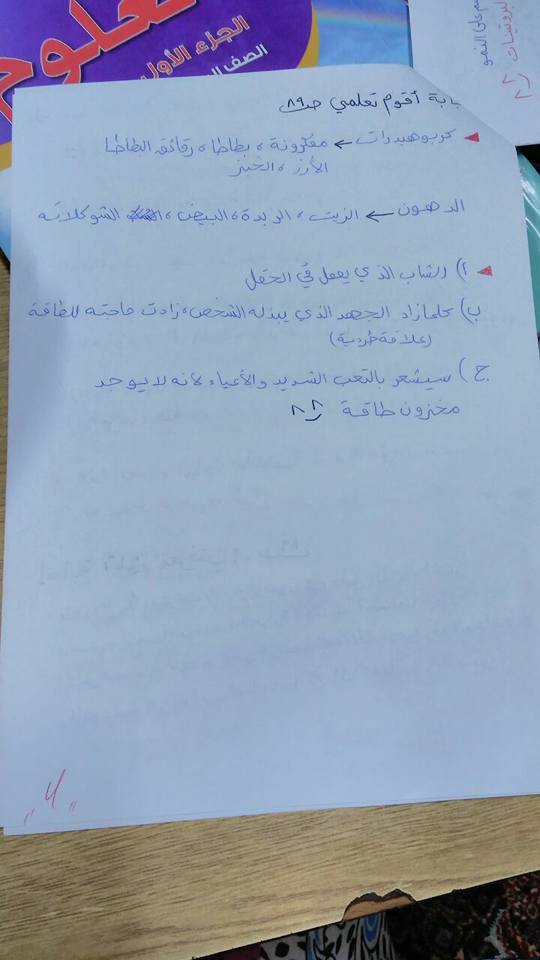 علوم
الجزء الأول
الصف
م على النمو
البروتينات
أقوم تعلمي ص ٨٩
كربوهيدرات ← مفكرونة، بطاطا، رقائق الطاطا
الأرز، الخبز
الدهون ← الزيت، الزبدة، البيض، الشوكلاته
أ) الشاب الذي يعمل في الحقل
ب) كلما زاد الجهد الذي يبذله الشخص، زادت حاجته للطاقة
(علاقة طردية)
ج) سيشعر بالتعب الشديد والأعياء لانه لا يوجد
مخزون طاقة
"٤"